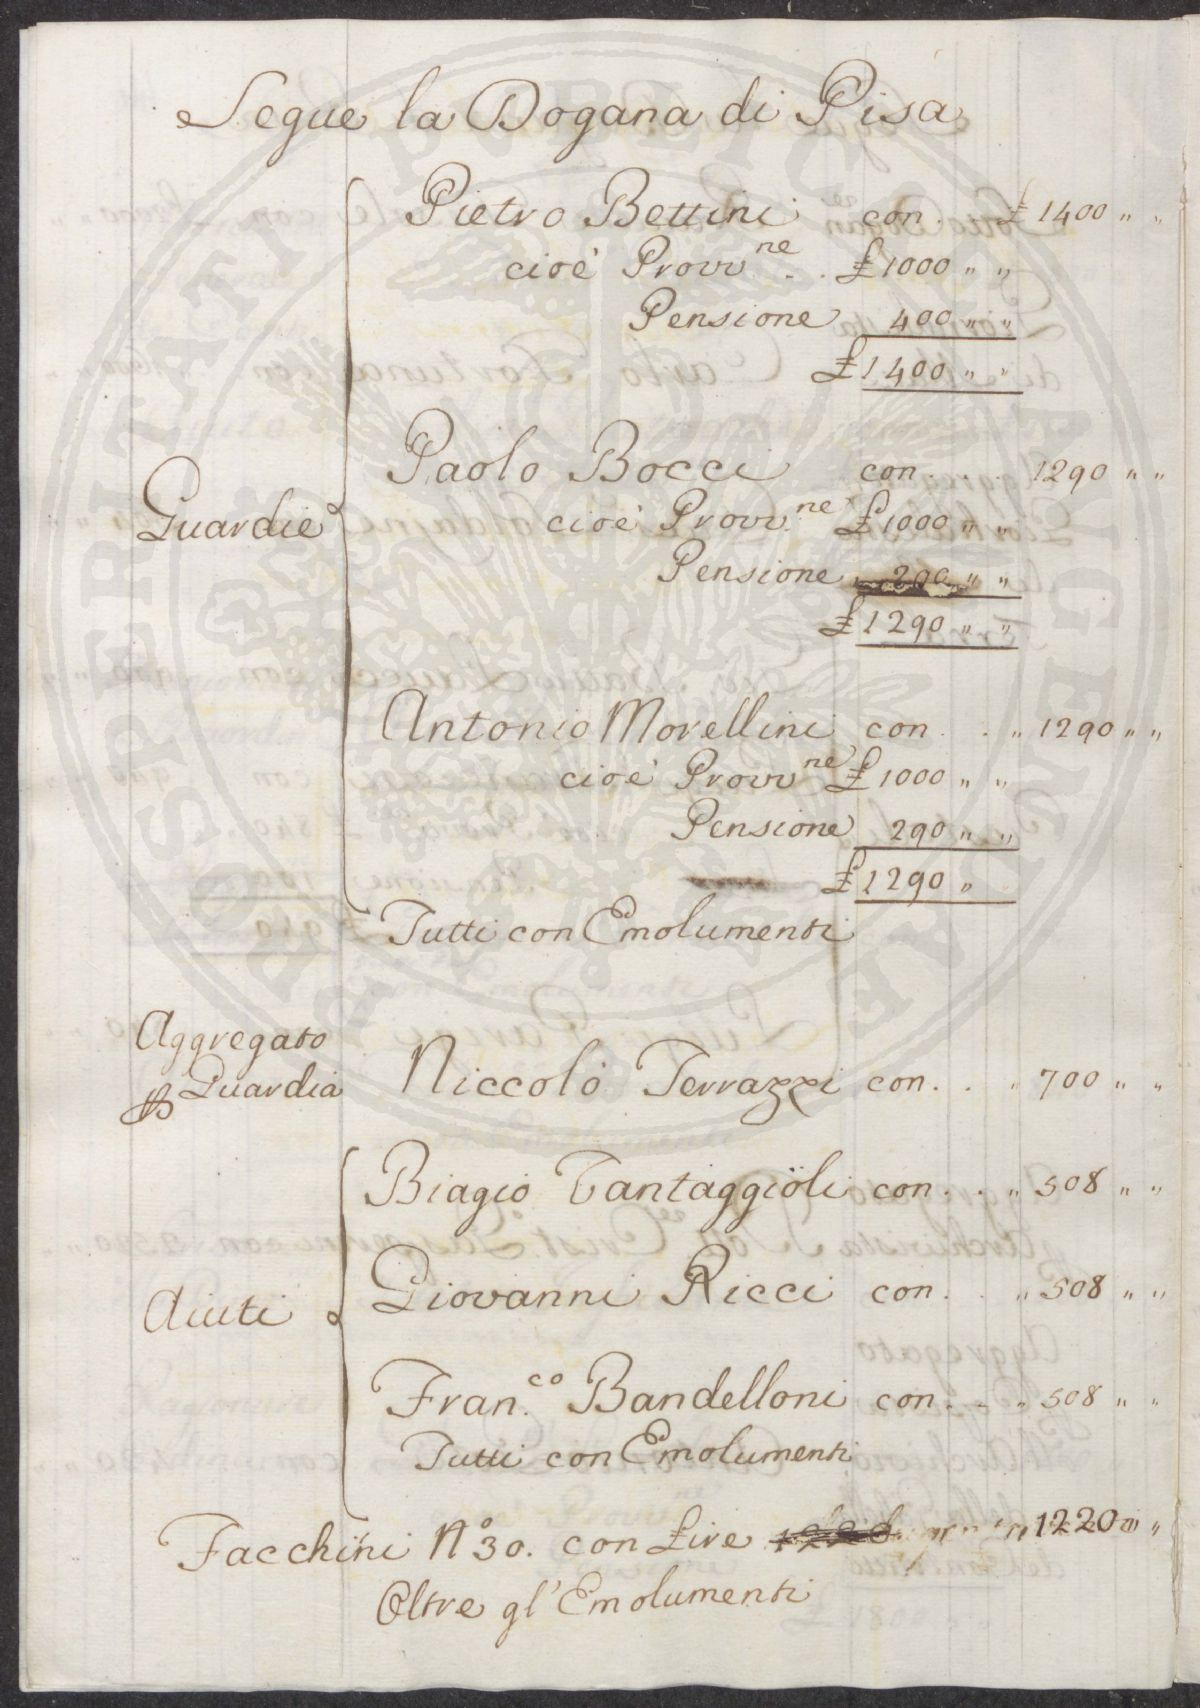 Segue la Dogana di Pisa
Pietro Bettini con . £ 1400 " "
cioè Provv.ne . . £ 1000 " "
Pensione 400 " "
£ 1400 " "
Guardie
Paolo Bocci con . . . 1290 " "
cioè Provv.ne £ 1000 " "
Pensione 290 " "
£ 1290 " "
Antonio Morellini con . . " 1290 " "
cioè Provv.ne £ 1000 " "
Pensione 290 " "
£ 1290 "
Tutti con Emolumenti
Aggregato
Guardia Niccolò Terrazzi con . . " 700 " "
Biagio Tantaggioli con . . " 508 " "
Aiuti Giovanni Ricci con . . " 508 " "
Fran.co Bandelloni con . . " 508 " "
Tutti con Emolumenti
Facchini N° 30. con Lire 1220 " "
Oltre gl'Emolumenti
PUBLICAE